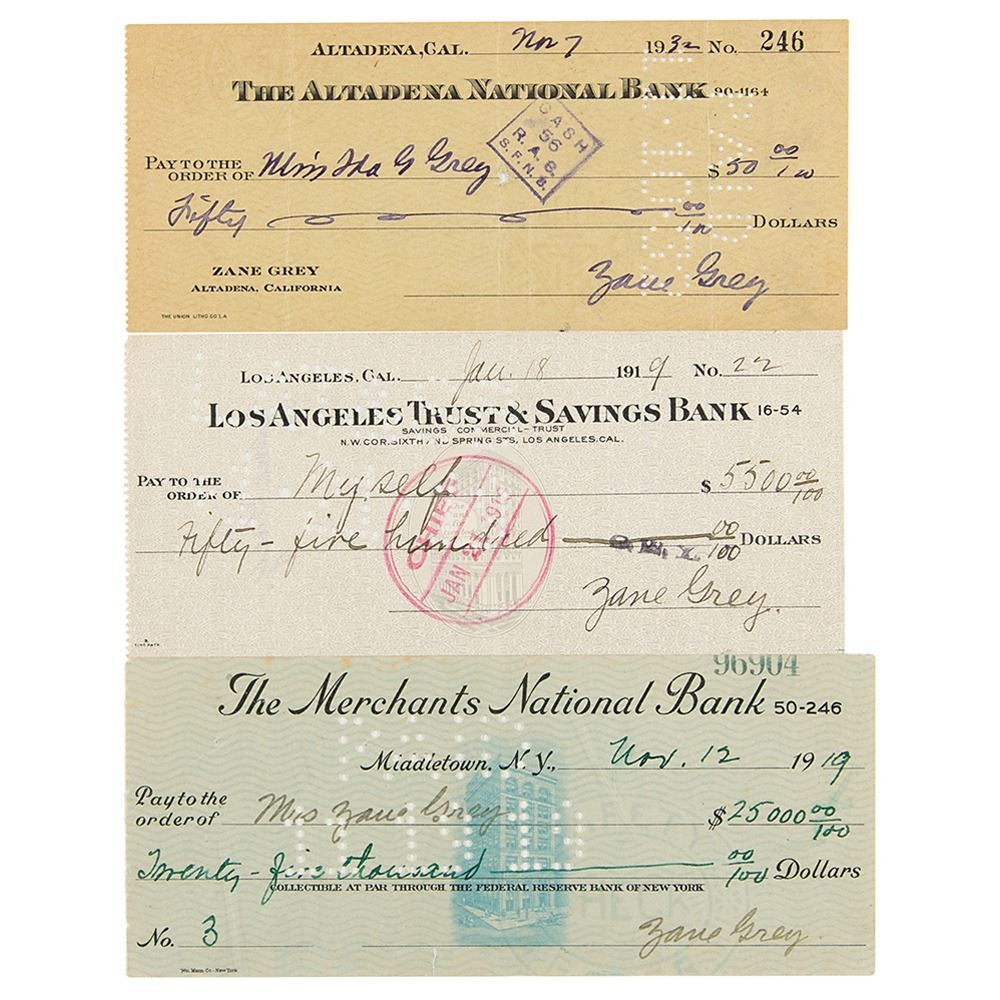 ALTADENA, CAL. Nov 7 1932 No. 246
THE ALTADENA NATIONAL BANK 90-1164
CASH
56
R. A. G.
S. F. N. B.
PAY TO THE
ORDER OF Miss Ida G Grey $ 50 00/100
Fifty 00/100 DOLLARS
ZANE GREY
ALTADENA, CALIFORNIA
Zane Grey
THE UNION LITHO CO LA
LOS ANGELES, CAL. Jan. 18 1919 No. 22
LOS ANGELES TRUST & SAVINGS BANK 16-54
SAVINGS COMMERCIAL-TRUST
N.W. COR. SIXTH AND SPRING STS, LOS ANGELES, CAL.
PAY TO THE
ORDER OF Myself $ 5500 00/100
Fifty-five hundred 00/100 DOLLARS
JAN
Zane Grey.
96904
The Merchants National Bank 50-246
Middletown, N.Y., Nov. 12 1919
Pay to the
order of Mrs Zane Grey $25000 00/100
Twenty-five thousand 00/100 Dollars
COLLECTIBLE AT PAR THROUGH THE FEDERAL RESERVE BANK OF NEW YORK
No. 3
Zane Grey.
Wm. Mann Co - New York